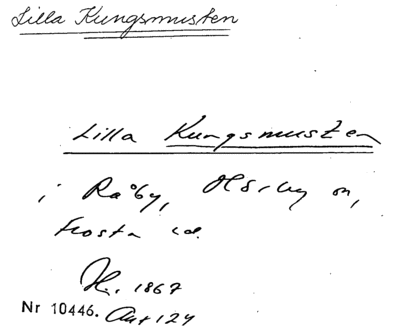 Lilla Kungsmusten
Lilla Kungsmusten
i Råby, Hörby sn,
Frosta hd.
H. 1867
Nr 10446. Ant 124